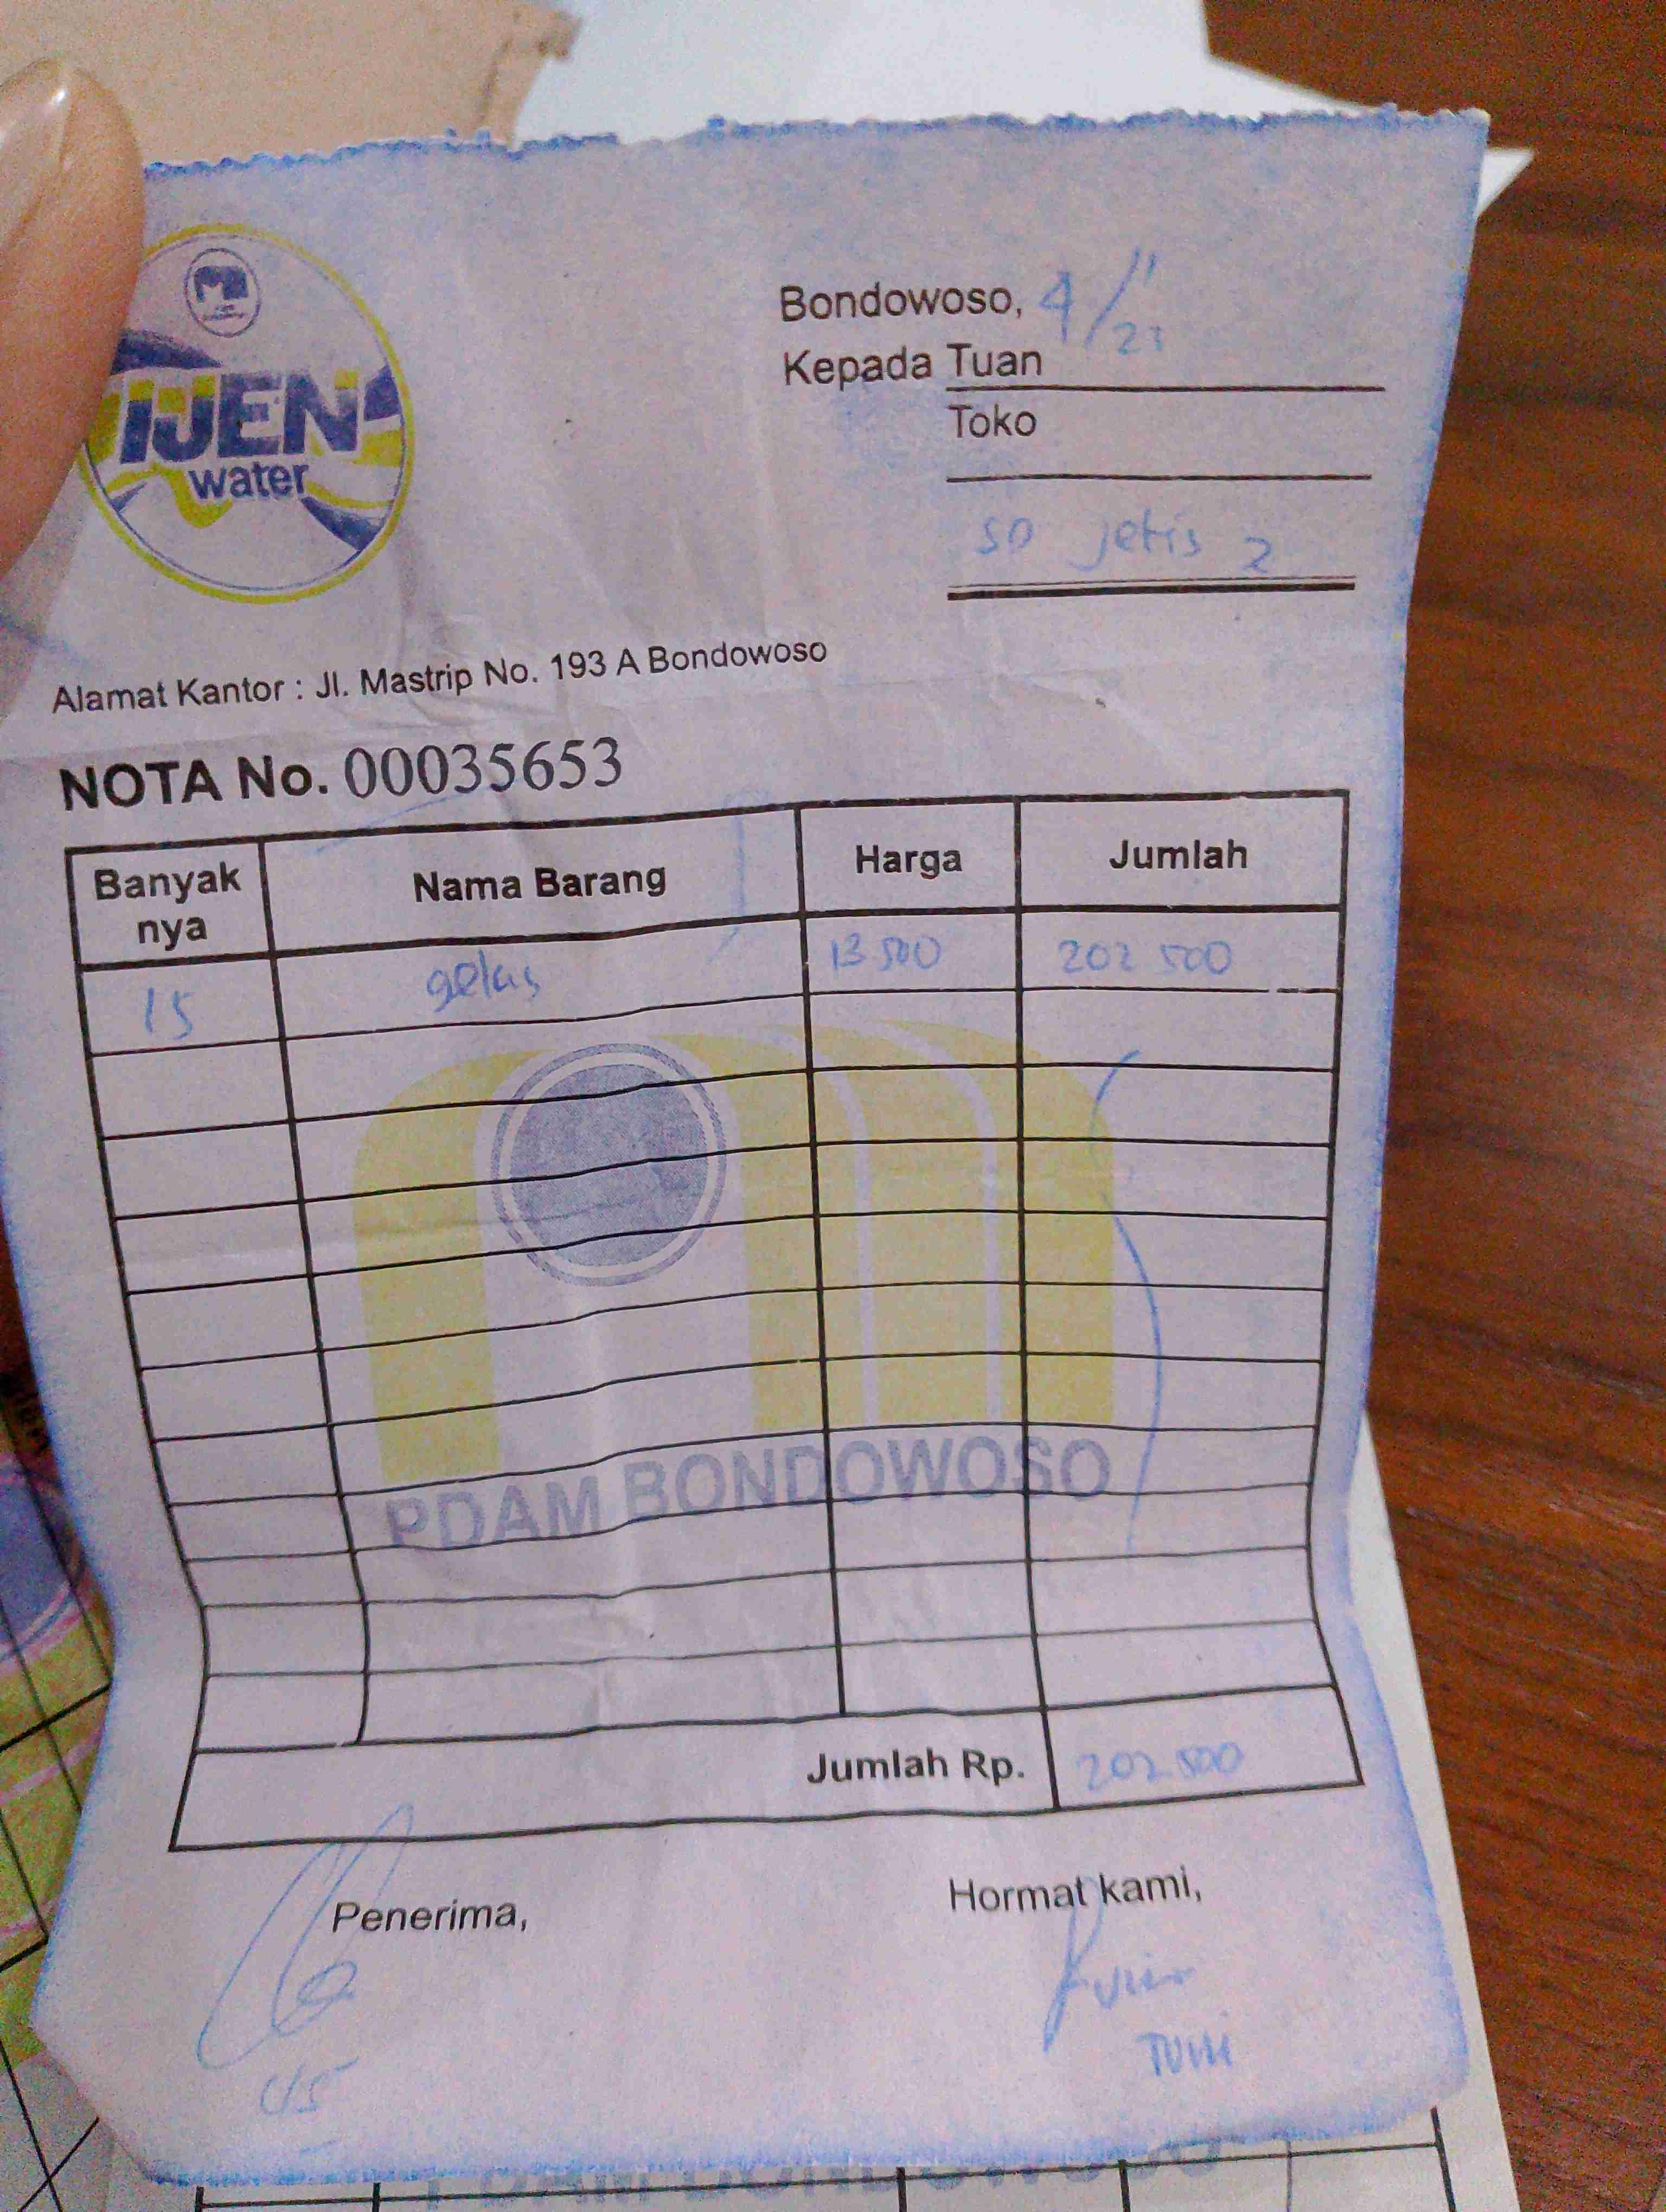 IJEN
water
Bondowoso, 4/11
23
Kepada Tuan
Toko
SD jetis 2
Alamat Kantor : Jl. Mastrip No. 193 A Bondowoso
NOTA No. 00035653
Banyak nya Nama Barang Harga Jumlah
15 gelas 13 500 202 500
PDAM BONDOWOSO
Jumlah Rp. 202.500
Penerima, Hormat kami,